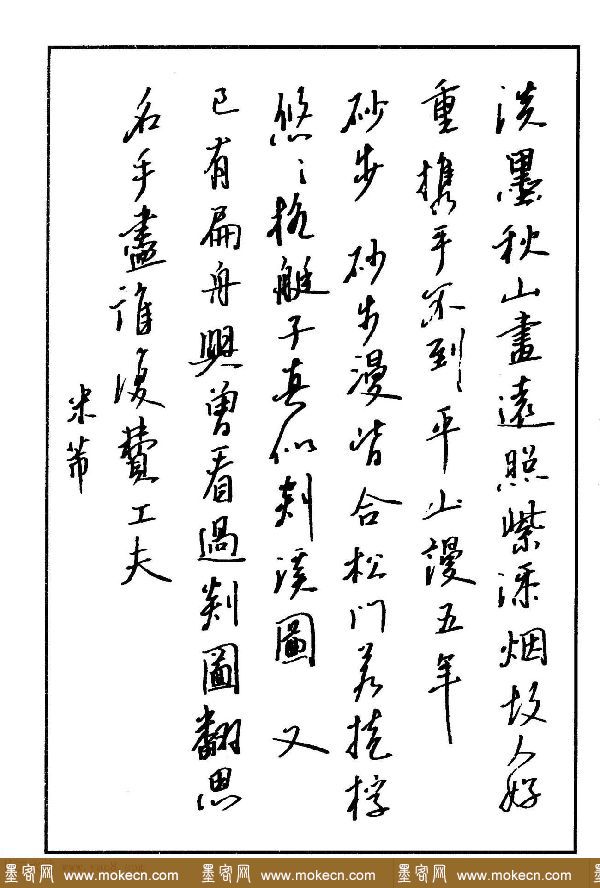 淡墨秋山畫遠照紫添烟故人好
重携手不到平山謾五年
砂步 砂步漫皆合松門若掩桴
悠々搖艇子真似剡溪圖 又
已有扁舟興曾看過剡圖翻思
名手盡誰復費工夫
米芾
墨客网 www.mokecn.com 墨客网 www.mokecn.com 墨客网 www.mokecn.com